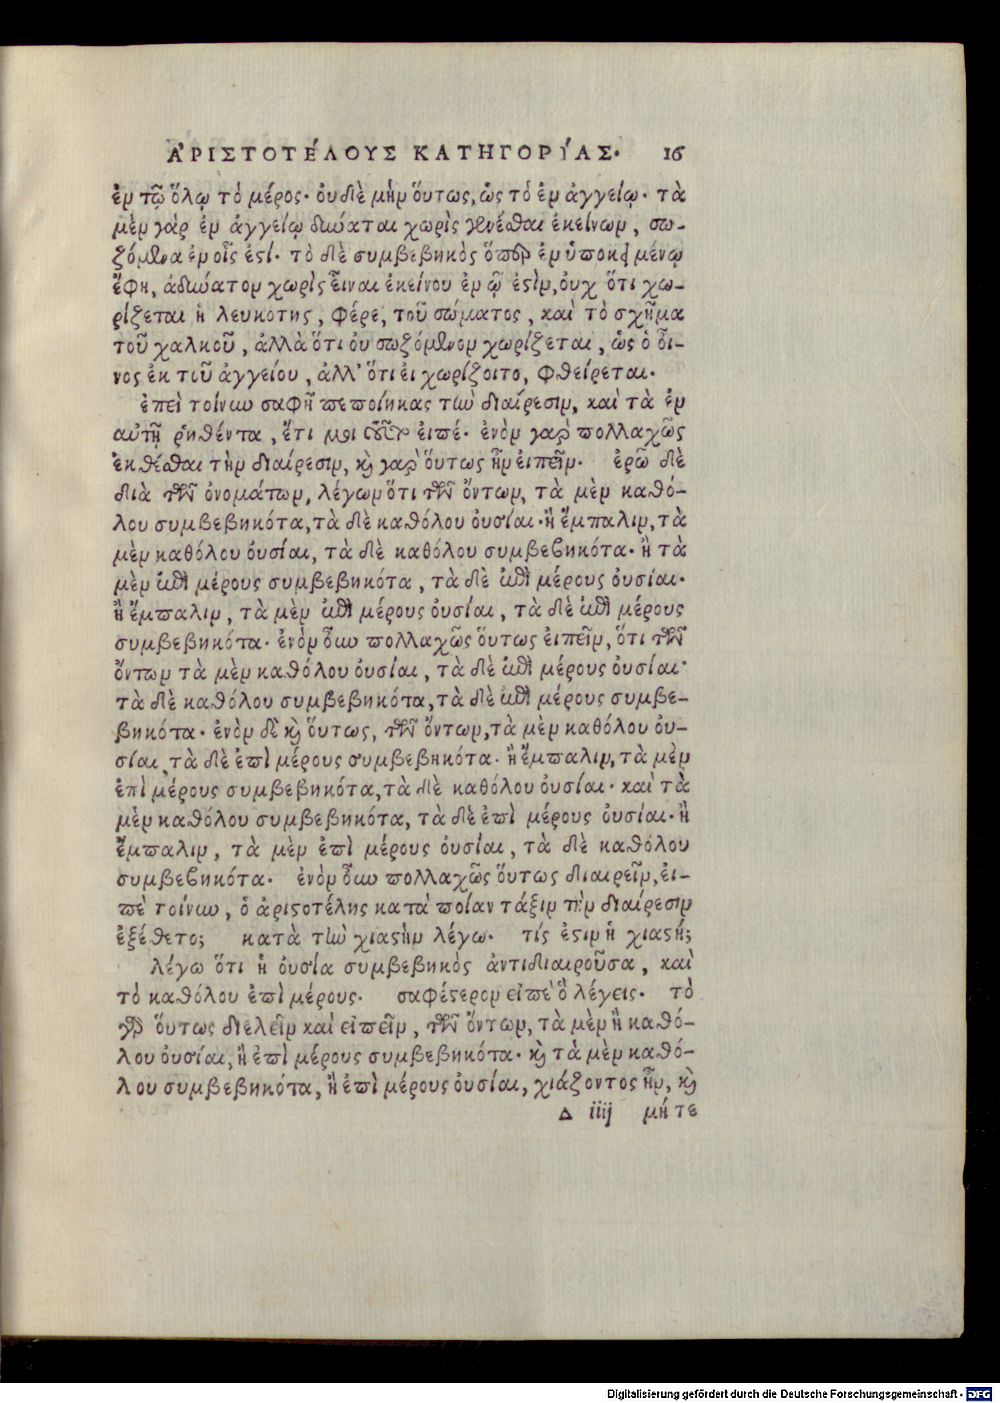 ΑΡΙΣΤΟΤΕΛΟΥΣ ΚΑΤΗΓΟΡΙΑΣ· 16
ἐν τῷ ὅλῳ τὸ μέρος· οὐ δὲ μὴν ὅυτως, ὡς τὸ ἐν ἀγγείῳ· τὰ
μὲν γὰρ ἐν ἀγγείῳ δύναται χωρὶς γενέσθαι ἐκείνων, σω-
ζόμενα ἐν οἷς ἐστί· τὸ δὲ συμβεβηκὸς ὅπερ ἐν ὑποκειμένῳ
ἔφη, ἀδύνατον χωρὶς εἶναι ἐκείνου ἐν ᾧ ἐστὶν, ουχ ὅτι χω-
ρίζεται ἡ λευκότης, φέρε, τοῦ σώματος, καὶ τὸ σχῆμα
τοῦ χαλκοῦ, ἀλλὰ ὅτι ὀυ σωζόμενον χωρίζεται, ὡς ὁ ὀῖ-
νος ἐκ τοῦ ἀγγείου, ἀλλ' ὅτι ἐι χωρίζοιτο, φθείρεται·
ἐπεὶ τοίνυν σαφῆ πεποίηκας τὴν διαίρεσιν, καὶ τὰ ἐν
αυτῇ ῥηθέντα, ἔτι μοι τοῦτο ἐιπέ· ἐνὸν γαρ πολλαχῶς
ἐκθέσθαι τὴν διαίρεσιν, καὶ γαρ ὅυτως ἦν ἐιπεῖν· ἐρῶ δὲ
διὰ τῶν ὀνομάτων, λέγων ὅτι τῶν ὄντων, τὰ μὲν καθό-
λου συμβεβηκότα, τὰ δὲ καθόλου ὀυσίαι· ἢ ἔμπαλιν, τὰ
μὲν καθόλου ὀυσίαι, τὰ δὲ καθόλου συμβεβηκότα· ἢ τὰ
μὲν ἐπὶ μέρους συμβεβηκότα, τὰ δὲ ἐπὶ μέρους ὀυσίαι·
ἢ ἔμπαλιν, τὰ μὲν ἐπὶ μέρους ὀυσίαι, τὰ δὲ ἐπὶ μέρους
συμβεβηκότα· ἐνὸν οὖν πολλαχῶς ὅυτως ἐιπεῖν, ὅτι τῶν
ὄντων τὰ μὲν καθόλου ὀυσίαι, τὰ δὲ ἐπὶ μέρους ὀυσίαι·
τὰ δὲ καθόλου συμβεβηκότα, τὰ δὲ ἐπὶ μέρους συμβε-
βηκότα· ἐνὸν δὲ καὶ ὅυτως, τῶν ὄντων, τὰ μὲν καθόλου ὀυ-
σίαι, τὰ δὲ ἐπὶ μέρους συμβεβηκότα· ἢ ἔμπαλιν, τὰ μὲν
ἐπὶ μέρους συμβεβηκότα, τὰ δὲ καθόλου ὀυσίαι· καὶ τὰ
μὲν καθόλου συμβεβηκότα, τὰ δὲ ἐπὶ μέρους ὀυσίαι· ἢ
ἔμπαλιν, τὰ μὲν ἐπὶ μέρους ὀυσίαι, τὰ δὲ καθόλου
συμβεβηκότα· ἐνὸν οὖν πολλαχῶς ὅυτως διαιρεῖν, ἐι-
πὲ τοίνυν, ὁ ἀριστοτέλης κατὰ ποίαν τάξιν τὴν διαίρεσιν
ἐξέθετο; κατὰ τὴν χιαστὴν λέγω· τίς ἐστιν ἡ χιαστή;
λέγω ὅτι ἡ ὀυσία συμβεβηκὸς ἀντιδιαιροῦσα, καὶ
τὸ καθόλου ἐπὶ μέρους· σαφέστερον εἰπὲ ὃ λέγεις· τὸ
γὰρ ὅυτως διελεῖν καὶ εἰπεῖν, τῶν ὄντων, τὰ μὲν ἢ καθό-
λου ὀυσίαι, ἢ ἐπὶ μέρους συμβεβηκότα· καὶ τὰ μὲν καθό-
λου συμβεβηκότα, ἢ ἐπὶ μέρους ὀυσίαι, χιάζοντος ἦν, καὶ
Δ iiij μή τε
Digitalisierung gefördert durch die Deutsche Forschungsgemeinschaft - DFG